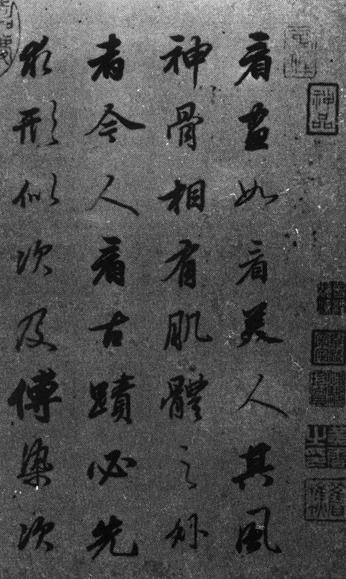 神品
看畫如看美人其風
神骨相有肌體之外
者今人看古蹟必先
求形似次及傅染次